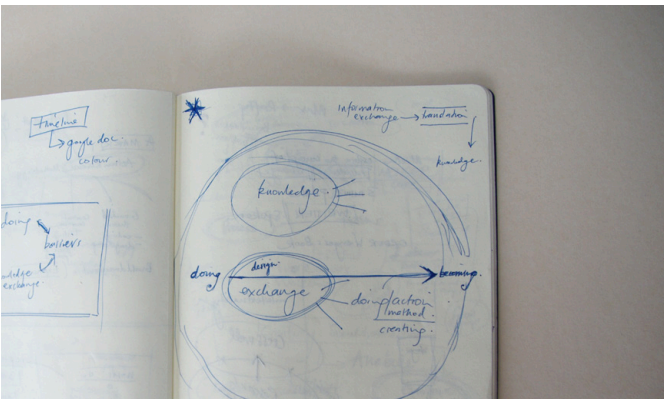 timeline
google doc.
colour.
doing
barriers
knowledge
exchange.
information
exchange
translation
knowledge.
knowledge.
doing
design.
becoming.
exchange
doing/action
method.
creating.